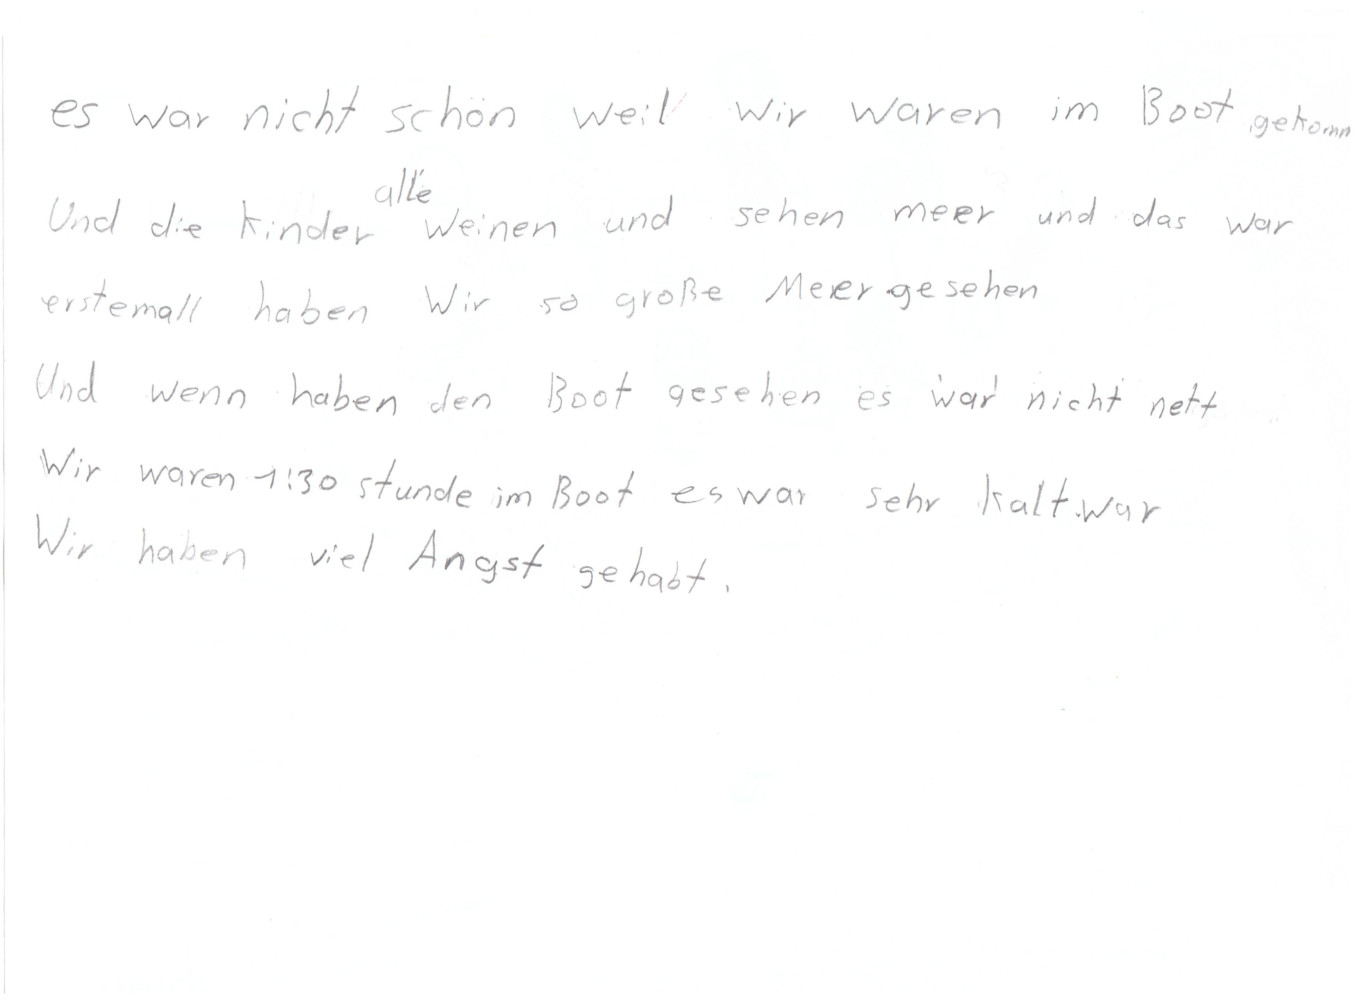 es war nicht schön weil wir waren im Boot gekomm
Und die kinder alle weinen und sehen meer und das war
erstemall haben Wir so große Meer gesehen
Und wenn haben den Boot gesehen es war nicht nett
Wir waren 1:30 stunde im Boot es war sehr kalt.war
Wir haben viel Angst gehabt.